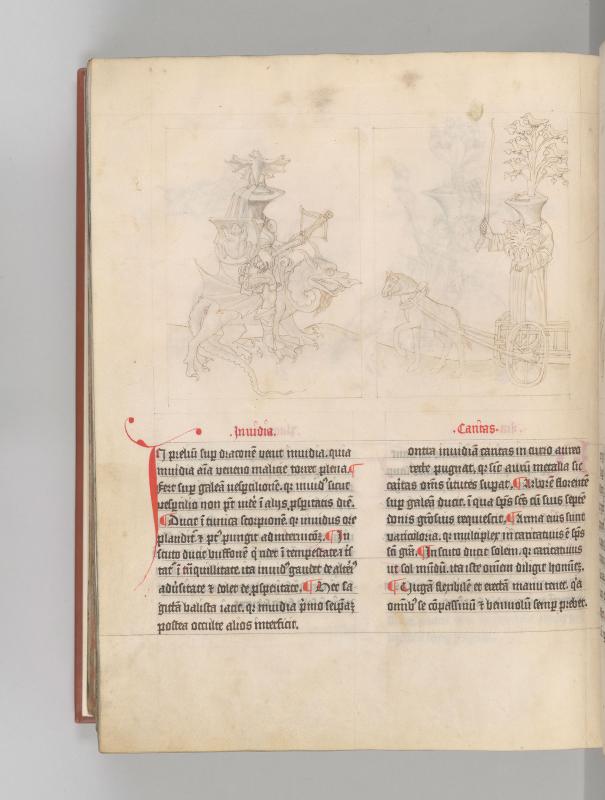 .Inuidia.
In preliū sup draconē venit inuidia. quia
inuidia aīa veneno malicie torret plena. ¶
Fert sup galeā vespilionē. qr inuidꝰ sicut
vespilio non pōt videre ī alijs psperitatis diē.
¶ Ducit ī tunica scorpionē. qr inuidus ore
plaudit ⁊ pꝰ pungit ad interitū. ¶ In
scuto ducit buffonē q̄ ridet ī tempestate ⁊ tris
ī tranquillitate. ita inuidꝰ gaudet de alterꝰ
aduersitate ⁊ dolet de psperitate. ¶ Hec sa
gittā valista iacit. qr inuidia primo seipam
postea occulte alios interficit.
.Caritas.
ontra inuidiā caritas in curru aureo
recte pugnat. qr sic aurū metalla sic
caritas oms virtutes supat. ¶ Arborē florentē
sup galeā ducit. ī qua sps scs cū suis septē
donis grosius requiescit. ¶ Arma eius sunt
varicoloria. qr multiplex in caritatiuis ē sps
sci grā. ¶ In scuto ducit solem. qr caritatiuus
ut sol mundū. ita iste omnem diligit hominē.
¶ Virgā flexibilē et erectā manu tenet. qr
omibꝰ se cōpassiuū ⁊ beniuolū semp prebet.